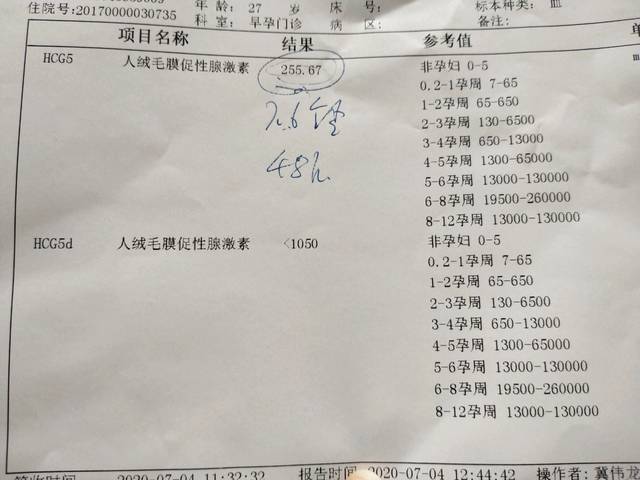 住院号:20170000030735
年 龄: 27 岁 床 号:
标本种类: 血
科 室: 早孕门诊 病 区:
备注:
项目名称 结果 参考值 单
HCG5 人绒毛膜促性腺激素 255.67 非孕妇 0-5 m
0.2-1孕周 7-65
1-2孕周 65-650
2-3孕周 130-6500
3-4孕周 650-13000
4-5孕周 1300-65000
5-6孕周 13000-130000
6-8孕周 19500-260000
8-12孕周 13000-130000
48h.
HCG5d 人绒毛膜促性腺激素 <1050 非孕妇 0-5
0.2-1孕周 7-65
1-2孕周 65-650
2-3孕周 130-6500
3-4孕周 650-13000
4-5孕周 1300-65000
5-6孕周 13000-130000
6-8孕周 19500-260000
8-12孕周 13000-130000
签收时间 2020-07-04 11:32:32 报告时间 2020-07-04 12:44:42 操作者: 冀伟龙